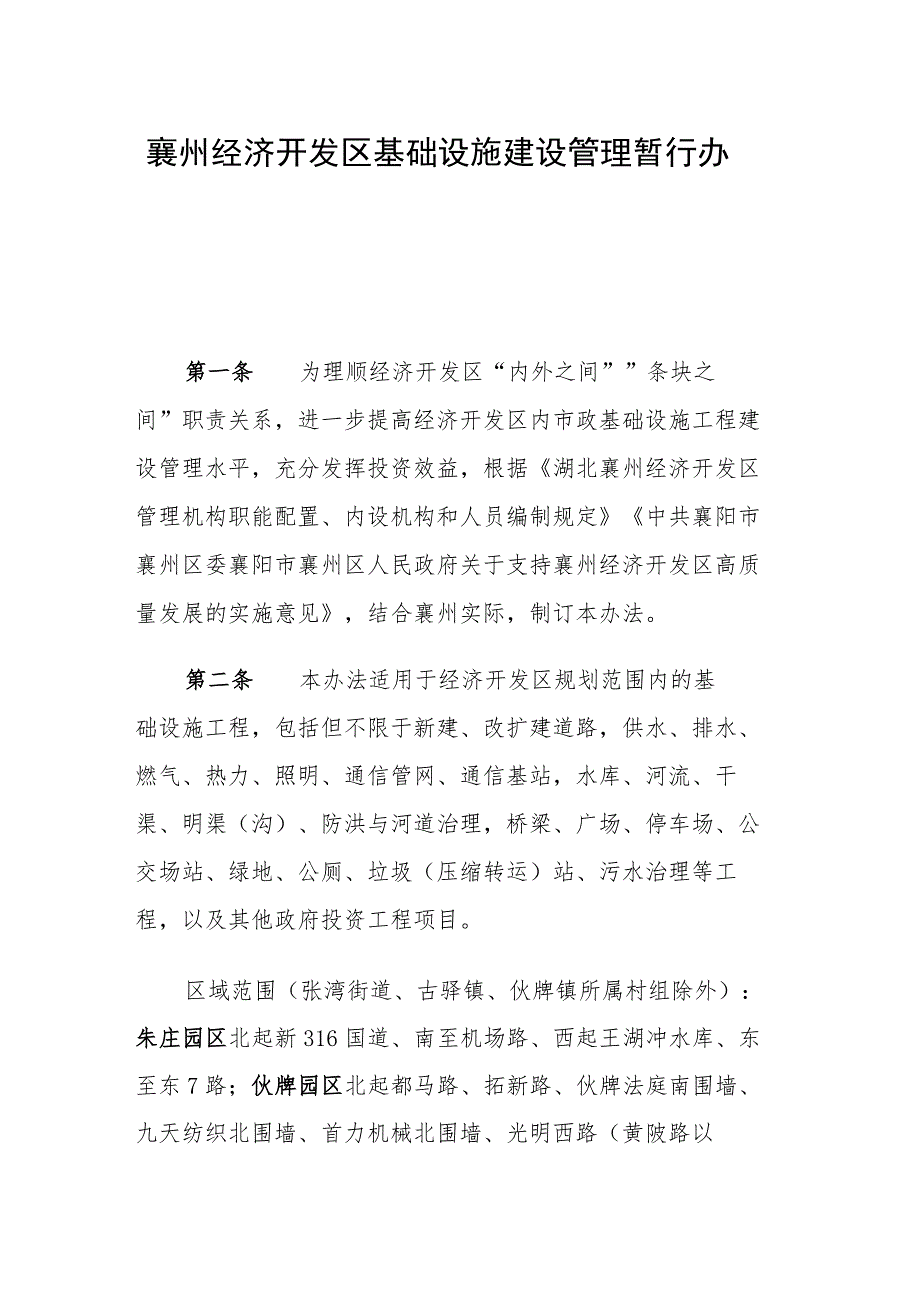 襄州经济开发区基础设施建设管理暂行办
第一条 为理顺经济开发区“内外之间””条块之
间”职责关系，进一步提高经济开发区内市政基础设施工程建
设管理水平，充分发挥投资效益，根据《湖北襄州经济开发区
管理机构职能配置、内设机构和人员编制规定》《中共襄阳市
襄州区委襄阳市襄州区人民政府关于支持襄州经济开发区高质
量发展的实施意见》，结合襄州实际，制订本办法。
第二条 本办法适用于经济开发区规划范围内的基
础设施工程，包括但不限于新建、改扩建道路，供水、排水、
燃气、热力、照明、通信管网、通信基站，水库、河流、干
渠、明渠（沟）、防洪与河道治理，桥梁、广场、停车场、公
交场站、绿地、公厕、垃圾（压缩转运）站、污水治理等工
程，以及其他政府投资工程项目。
区域范围（张湾街道、古驿镇、伙牌镇所属村组除外）：
朱庄园区北起新 316 国道、南至机场路、西起王湖冲水库、东
至东 7 路；伙牌园区北起都马路、拓新路、伙牌法庭南围墙、
九天纺织北围墙、首力机械北围墙、光明西路（黄陂路以